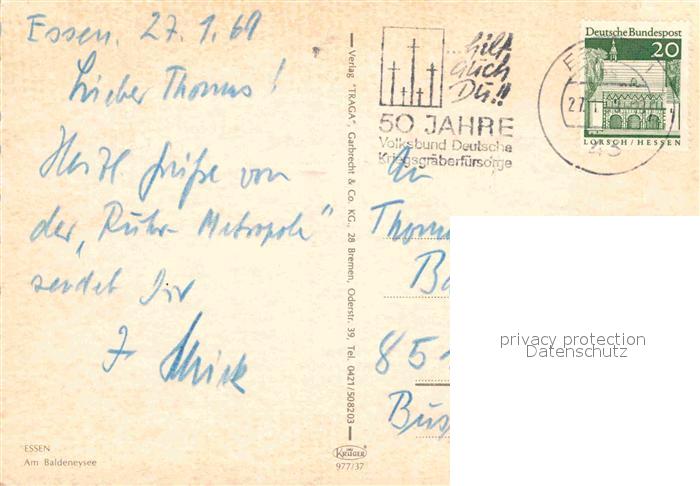 Essen. 27.1.69
Lieber Thomas!
Herzl. Grüße von
der „Ruhr-Metropole"
sendet Dir
ESSEN
Am Baldeneysee
Verlag "TRAGA" Garbrecht & Co. KG., 28 Bremen, Oderstr. 39, Tel. 0421/508203
KRÜGER
977/37
...hilf
auch
Du!!
50 JAHRE
Volksbund Deutsche
Kriegsgräberfürsorge
Deutsche Bundespost
20
LORSCH/HESSEN
An
Thom
Ba
851
Bus
privacy protection
Datenschutz